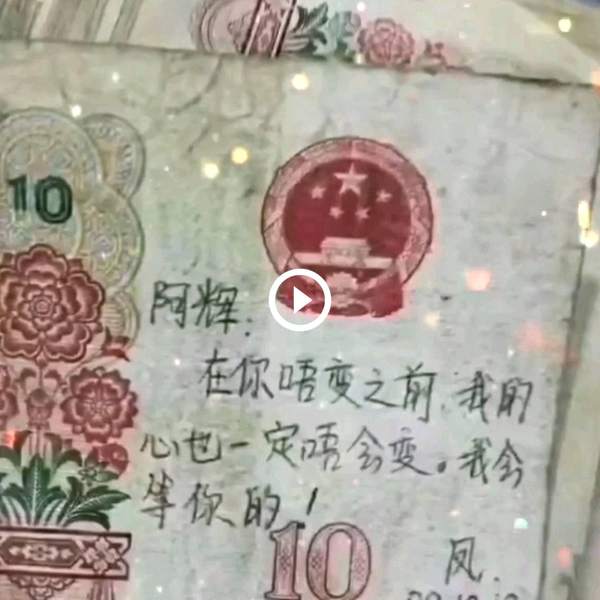 10
阿辉:
在你唔变之前,我的
心也一定唔会变。我会
等你的!
10
凤.